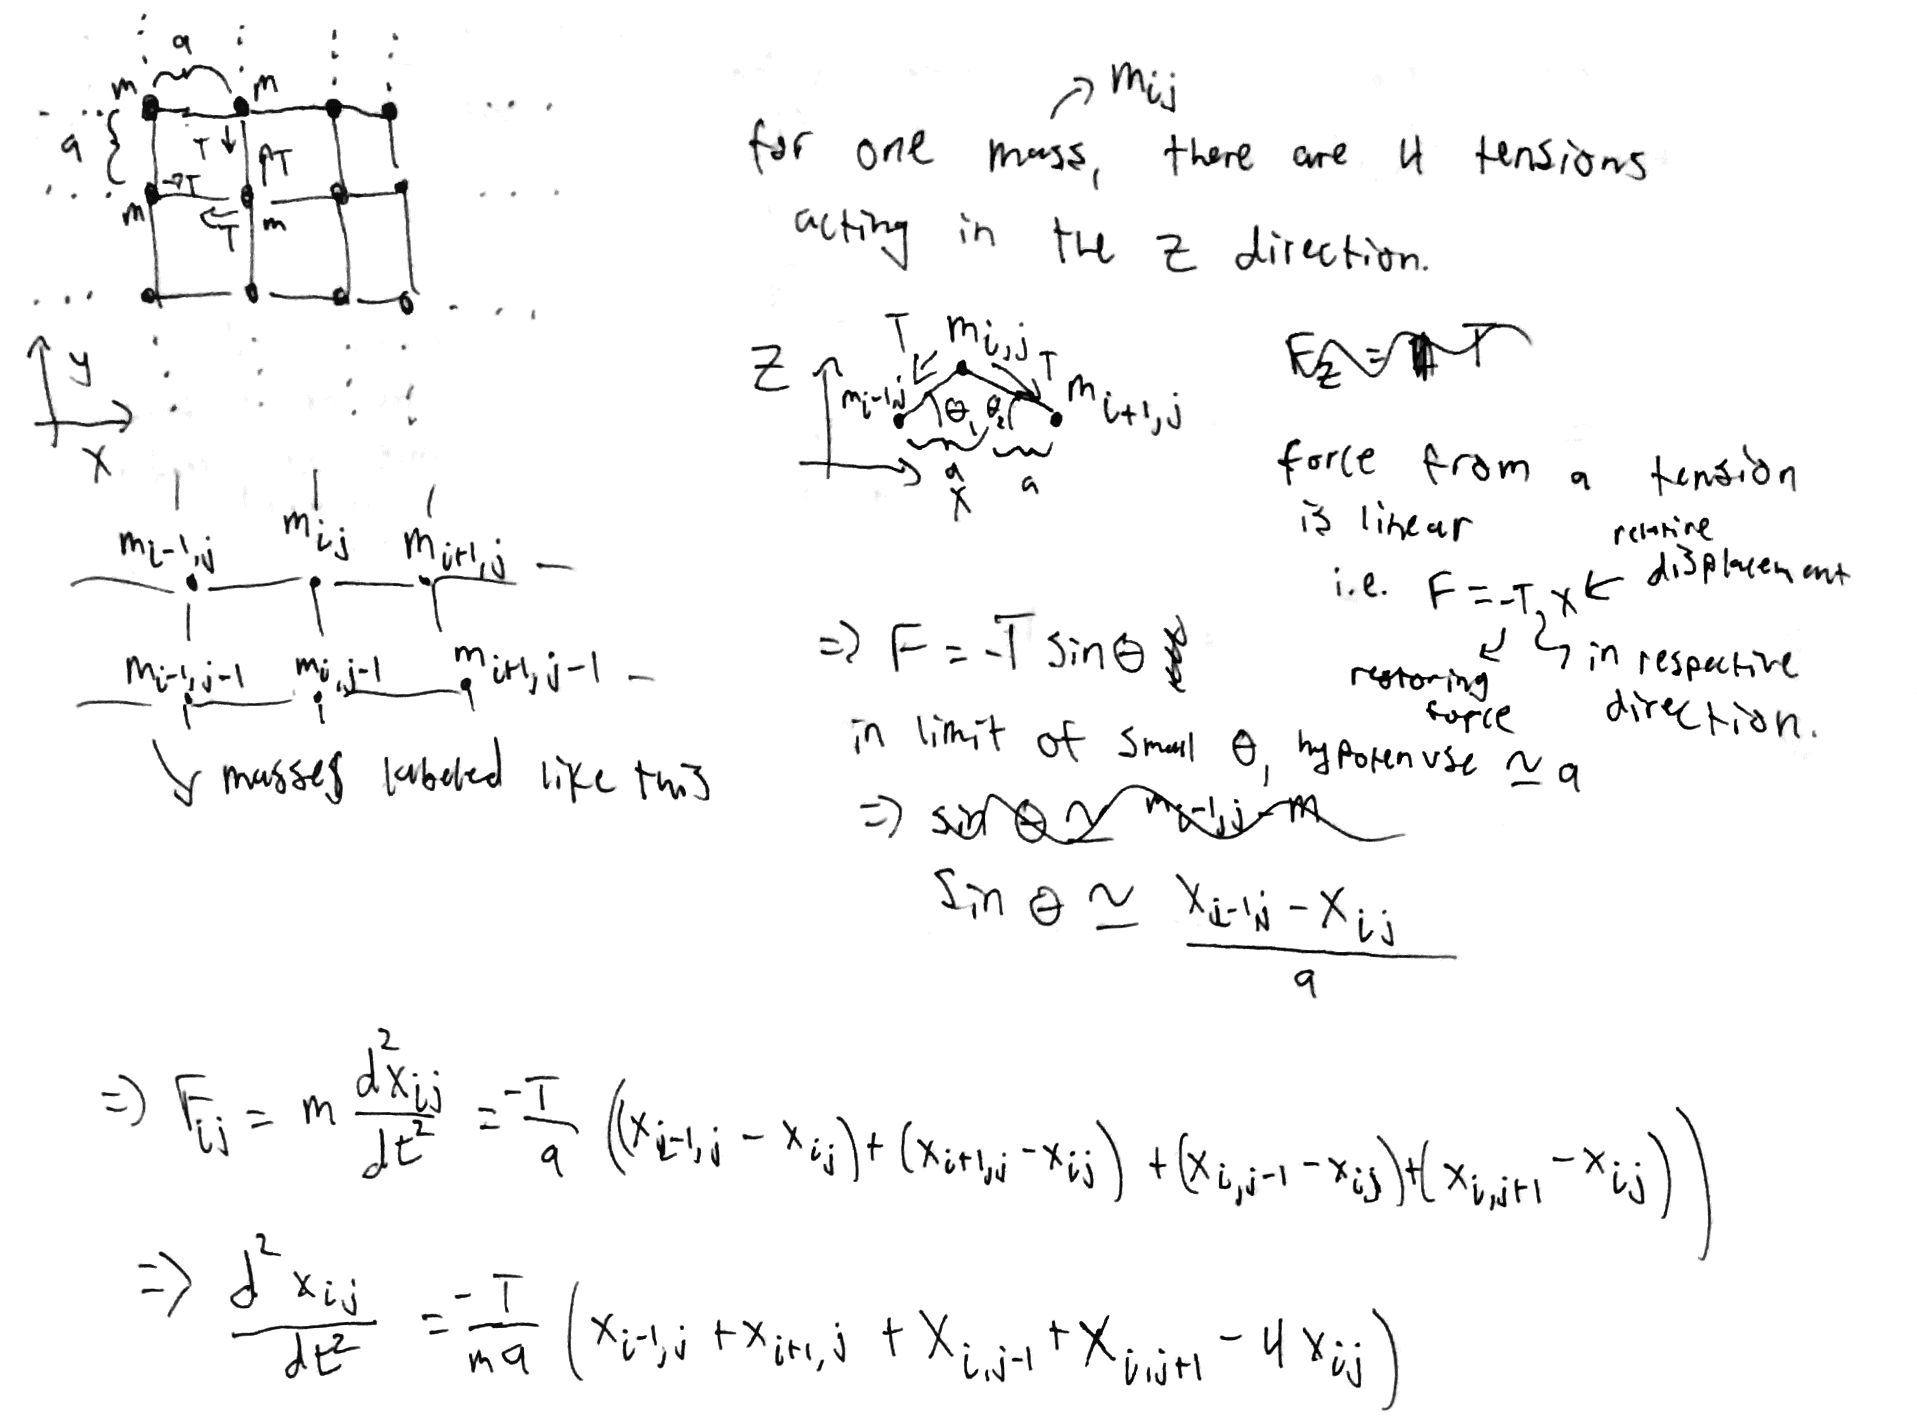 a
m m
a { T ↓ ↑T
→T
m ← T m
y
x
m_{i-1,j} m_{ij} m_{i+1,j}
m_{i-1,j-1} m_{i,j-1} m_{i+1,j-1}
↘ masses labeled like this
→ m_{ij}
for one mass, there are 4 tensions
acting in the z direction.
z T m_{i,j} T
m_{i-1,j} θ_1 θ_2 m_{i+1,j}
a a
x
F_z = 4T
force from a tension
is linear
relative
displacement
i.e. F = -T, x ←
restoring
force
in respective
direction.
⇒ F = -T sin θ
in limit of small θ, hypotenuse ≃ a
⇒ sin θ ≃ m_{i-1,j} - m
sin θ ≃ \frac{x_{i-1,j} - x_{ij}}{a}
⇒ F_{ij} = m \frac{d^2 x_{ij}}{dt^2} = \frac{-T}{a} ((x_{i-1,j} - x_{ij}) + (x_{i+1,j} - x_{ij}) + (x_{i,j-1} - x_{ij}) + (x_{i,j+1} - x_{ij}))
⇒ \frac{d^2 x_{ij}}{dt^2} = \frac{-T}{ma} (x_{i-1,j} + x_{i+1,j} + x_{i,j-1} + x_{i,j+1} - 4 x_{ij})